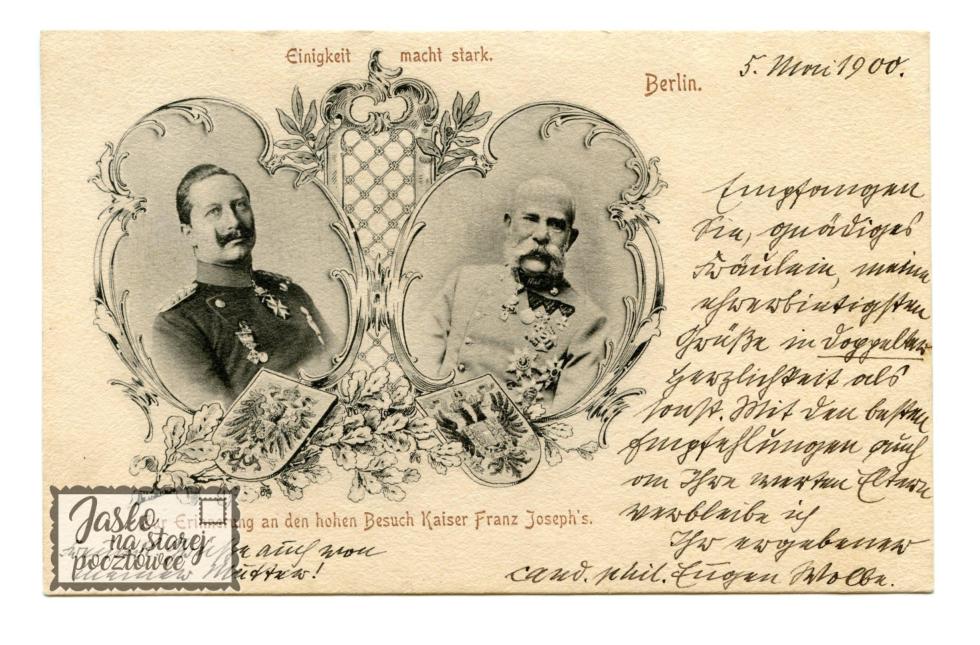 Einigkeit macht stark.
Berlin.
5. Mai 1900.
Empfangen
Sie, gnädiges
Fräulein, meine
ehrerbietigsten
Grüße in doppelter
Herzlichkeit als
sonst. Mit den besten
Empfehlungen auch
an Ihre werten Eltern
verbleibe ich
Ihr ergebener
cand. phil. Eugen Wolbe.
Erinnerung an den hohen Besuch Kaiser Franz Joseph's.
auch von
meiner Mutter!
Jaśko
na starej
pocztówce